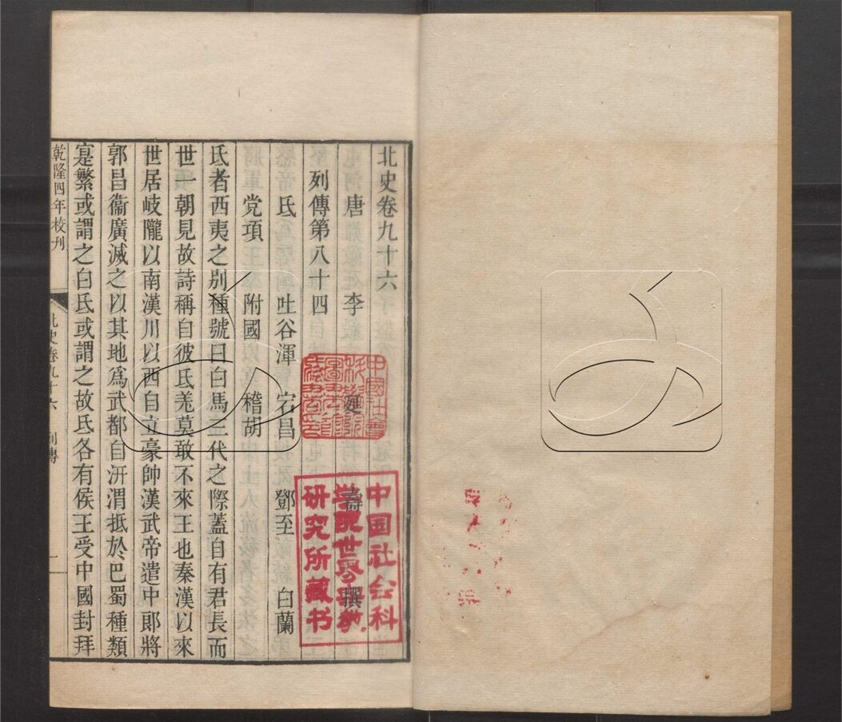 北史卷九十六
唐 李 延 壽 撰
列傳第八十四
氐 吐谷渾 宕昌 鄧至 白蘭
党項 附國 稽胡
氐者西夷之別種號曰白馬三代之際蓋自有君長而
世一朝見故詩稱自彼氐羌莫敢不來王也秦漢以來
世居岐隴以南漢川以西自立豪帥漢武帝遣中郎將
郭昌衞廣滅之以其地爲武都自汧渭抵於巴蜀種類
寔繁或謂之白氐或謂之故氐各有侯王受中國封拜
乾隆四年校刊
北史卷九十六 列傳 一
中国社会科
学院世界宗教
研究所藏书